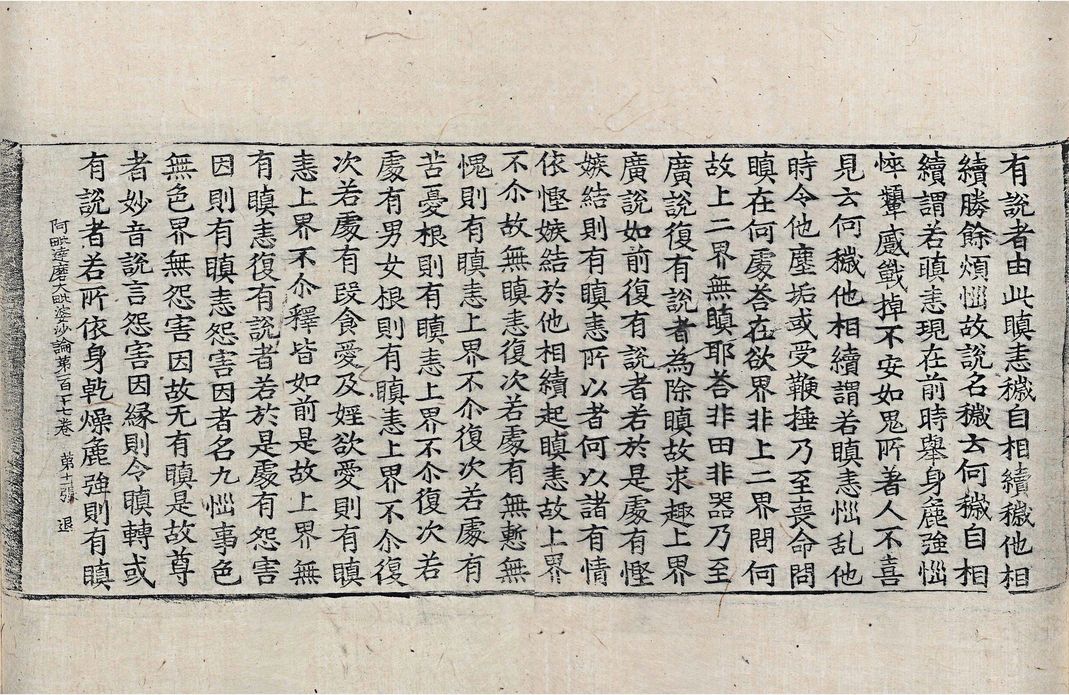 有說者由此瞋恚穢自相續穢他相
續勝餘煩惱故說名穢云何穢自相
續謂若瞋恚現在前時舉身麁強惱
悴顰慼戰掉不安如鬼所著人不喜
見云何穢他相續謂若瞋恚惱乱他
時令他塵垢或受鞭捶乃至喪命問
瞋在何處荅在欲界非上二界問何
故上二界無瞋耶荅非田非器乃至
廣說復有說者為除瞋故求趣上界
廣說如前復有說者若於是處有慳
嫉結則有瞋恚所以者何以諸有情
依慳嫉結於他相續起瞋恚故上界
不尒故無瞋恚復次若處有無慙無
愧則有瞋恚上界不尒復次若處有
苦憂根則有瞋恚上界不尒復次若
處有男女根則有瞋恚上界不尒復
次若處有段食愛及婬欲愛則有瞋
恚上界不尒釋皆如前是故上界無
有瞋恚復有說者若於是處有怨害
因則有瞋恚怨害因者名九惱事色
無色界無怨害因故无有瞋是故尊
者妙音說言怨害因緣則令瞋轉或
阿毗達磨大毗婆沙論第一百二十七卷 第十一張 退
有說者若所依身乾燥麁強則有瞋